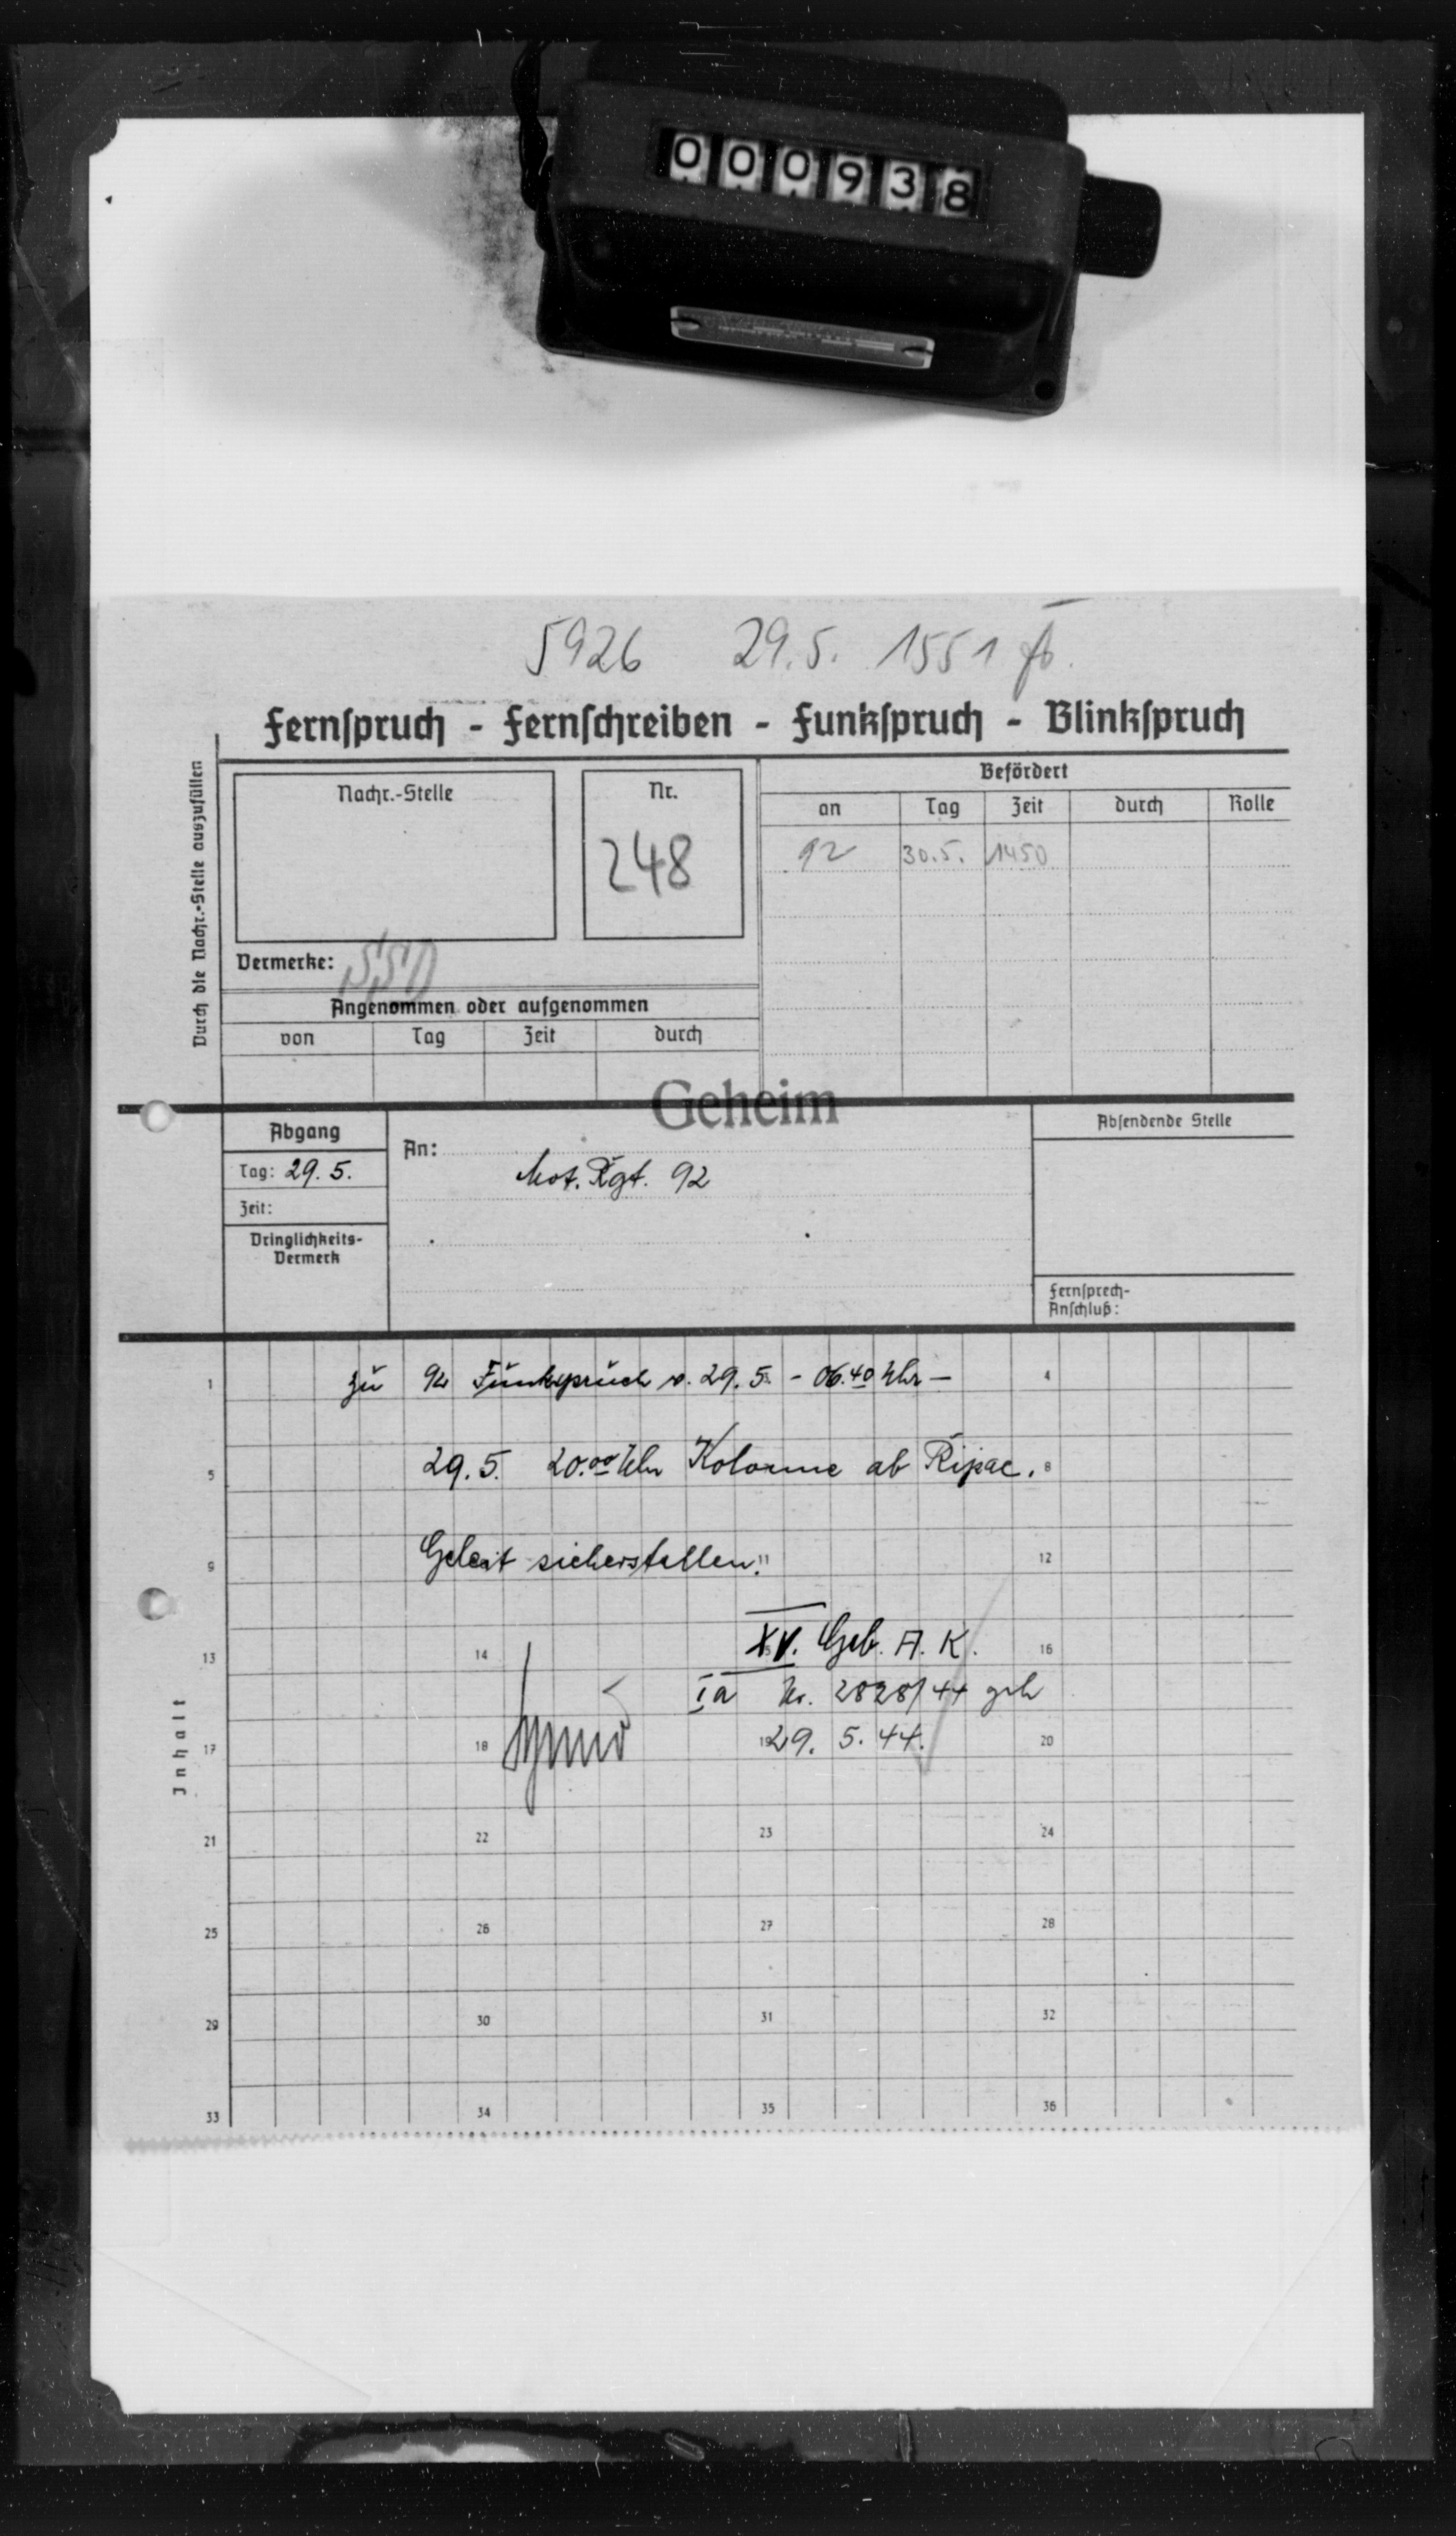 000938
5926 29.5. 1551
Fernspruch - Fernschreiben - Funkspruch - Blinkspruch
Durch die Nachr.-Stelle auszufüllen
Nachr.-Stelle
Nr.
248
Befördert
an Tag Zeit durch Rolle
92 30.5. 1450
Vermerke: SSD
Angenommen oder aufgenommen
von Tag Zeit durch
Geheim
Abgang
Tag: 29. 5.
Zeit:
Dringlichkeits-
Vermerk
An:
Mot. Rgt. 92
Absendende Stelle
Fernsprech-
Anschluß:
Inhalt
1 zu Funkspruch v. 29.5. - 06.40 Uhr - 4
5 29.5. 20.00 Uhr Kolonne ab Ripac. 8
9 Geleit sicherstellen. 11 12
13 14 XV. Geb. A. K. 16
Ia Nr. 2828/44 geh
17 18 19 29. 5. 44. 20
21 22 23 24
25 26 27 28
29 30 31 32
33 34 35 36